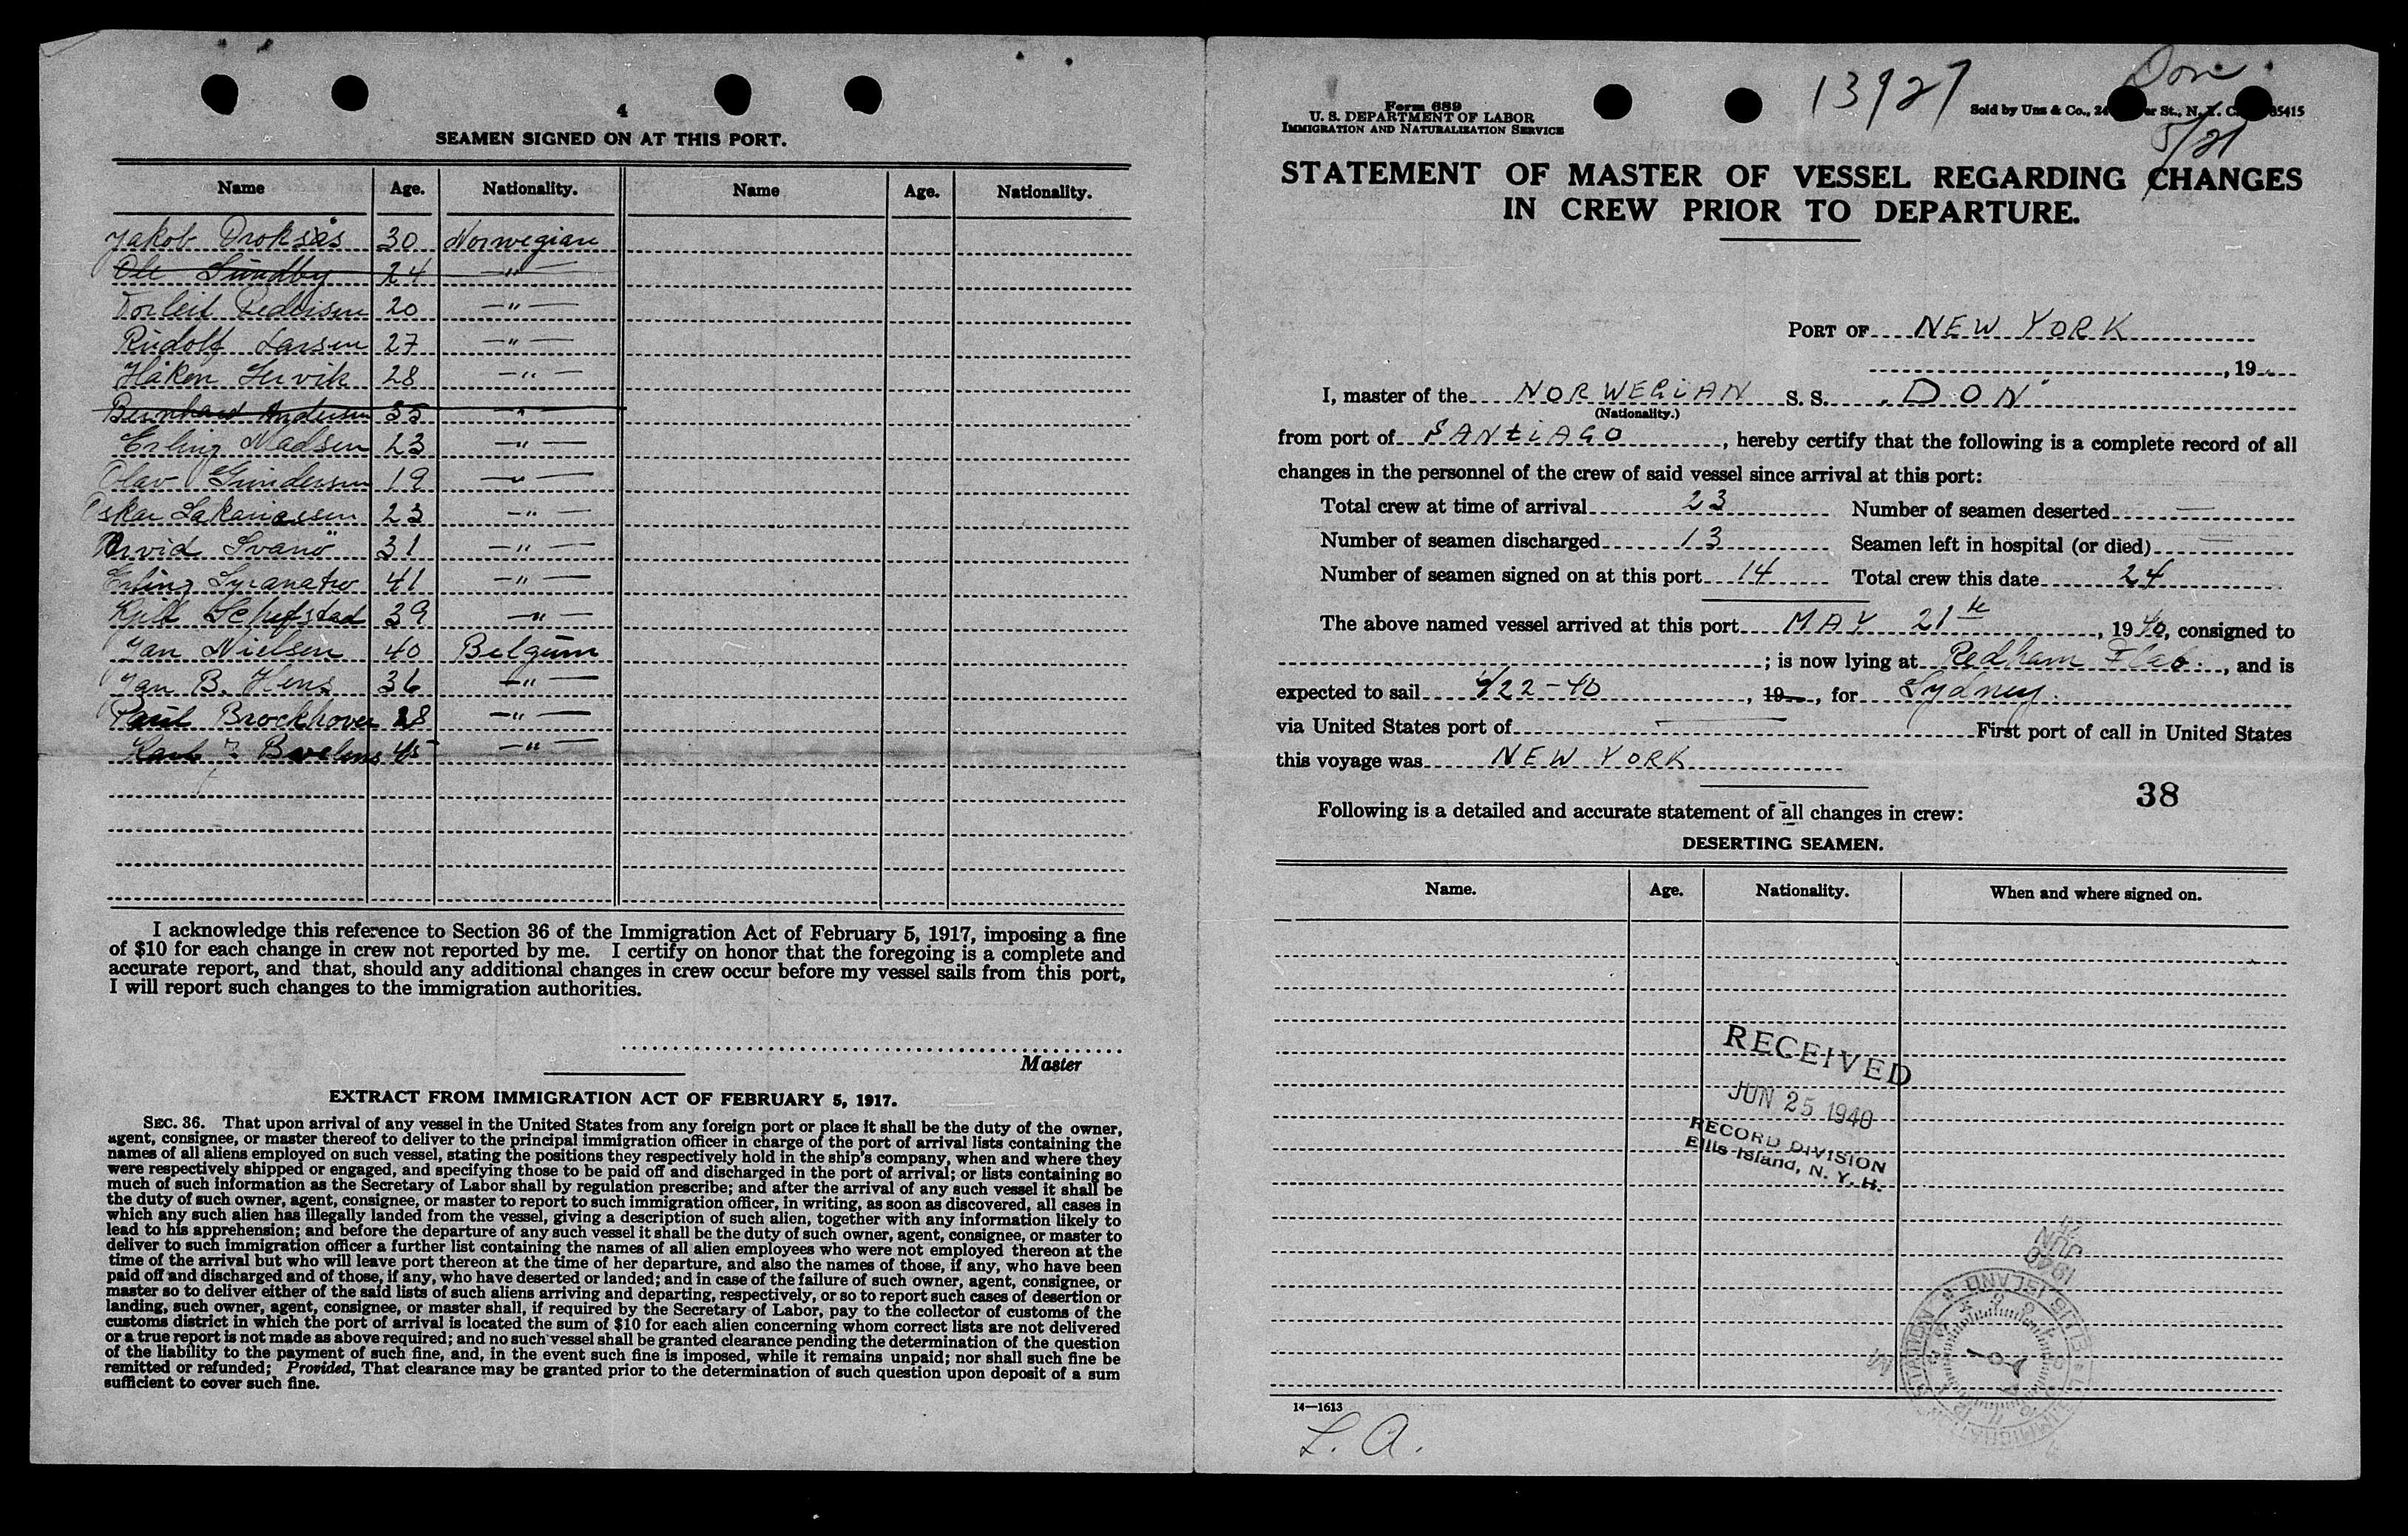 4
SEAMEN SIGNED ON AT THIS PORT.
Name Age. Nationality. Name Age. Nationality.
Jakob Droksås 30 Norwegian
Ole Sundby 24 —"—
Torleif Pedersen 20 —"—
Rudolf Larsen 27 —"—
Håkon 28 —"—
Bernhard Andersen 35 "
Erling Madsen 23 —"—
Olav Gundersen 19 —"—
Oskar 23 —"—
Arvid Svanö 31 —"—
Erling 41 —"—
39 —"—
Jan Nielsen 40 Belgium
Jan B. Hens 36 —"—
Paul Brockhoven 28 —"—
45 —"—
I acknowledge this reference to Section 36 of the Immigration Act of February 5, 1917, imposing a fine
of $10 for each change in crew not reported by me. I certify on honor that the foregoing is a complete and
accurate report, and that, should any additional changes in crew occur before my vessel sails from this port,
I will report such changes to the immigration authorities.
Master
EXTRACT FROM IMMIGRATION ACT OF FEBRUARY 5, 1917.
SEC. 36. That upon arrival of any vessel in the United States from any foreign port or place it shall be the duty of the owner,
agent, consignee, or master thereof to deliver to the principal immigration officer in charge of the port of arrival lists containing the
names of all aliens employed on such vessel, stating the positions they respectively hold in the ship's company, when and where they
were respectively shipped or engaged, and specifying those to be paid off and discharged in the port of arrival; or lists containing so
much of such information as the Secretary of Labor shall by regulation prescribe; and after the arrival of any such vessel it shall be
the duty of such owner, agent, consignee, or master to report to such immigration officer, in writing, as soon as discovered, all cases in
which any such alien has illegally landed from the vessel, giving a description of such alien, together with any information likely to
lead to his apprehension; and before the departure of any such vessel it shall be the duty of such owner, agent, consignee, or master to
deliver to such immigration officer a further list containing the names of all alien employees who were not employed thereon at the
time of the arrival but who will leave port thereon at the time of her departure, and also the names of those, if any, who have been
paid off and discharged and of those, if any, who have deserted or landed; and in case of the failure of such owner, agent, consignee, or
master so to deliver either of the said lists of such aliens arriving and departing, respectively, or so to report such cases of desertion or
landing, such owner, agent, consignee, or master shall, if required by the Secretary of Labor, pay to the collector of customs of the
customs district in which the port of arrival is located the sum of $10 for each alien concerning whom correct lists are not delivered
or a true report is not made as above required; and no such vessel shall be granted clearance pending the determination of the question
of the liability to the payment of such fine, and, in the event such fine is imposed, while it remains unpaid; nor shall such fine be
remitted or refunded; Provided, That clearance may be granted prior to the determination of such question upon deposit of a sum
sufficient to cover such fine.
Form 689
U. S. DEPARTMENT OF LABOR
IMMIGRATION AND NATURALIZATION SERVICE
13927
Don
Sold by Uns & Co., 24 St., N. Y. C. 35415
5/21
STATEMENT OF MASTER OF VESSEL REGARDING CHANGES
IN CREW PRIOR TO DEPARTURE.
PORT OF NEW YORK
, 19
I, master of the NORWEGIAN S. S. "DON"
(Nationality.)
from port of SANTIAGO, hereby certify that the following is a complete record of all
changes in the personnel of the crew of said vessel since arrival at this port:
Total crew at time of arrival 23 Number of seamen deserted —
Number of seamen discharged 13 Seamen left in hospital (or died) —
Number of seamen signed on at this port 14 Total crew this date 24
The above named vessel arrived at this port MAY 21, 1940, consigned to
; is now lying at Redham, and is
expected to sail 6/22-40, 19, for Sydney.
via United States port of — First port of call in United States
this voyage was NEW YORK
38
Following is a detailed and accurate statement of all changes in crew:
DESERTING SEAMEN.
Name. Age. Nationality. When and where signed on.
RECEIVED
JUN 25 1940
RECORD DIVISION
Ellis Island, N. Y. H.
JUN
1940
ELLIS ISLAND
IMMIGRATION STATION
14—1613
L. A.